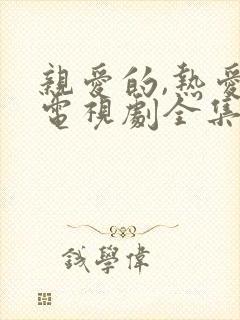 親愛的,熱愛
電視劇全集
錢學偉